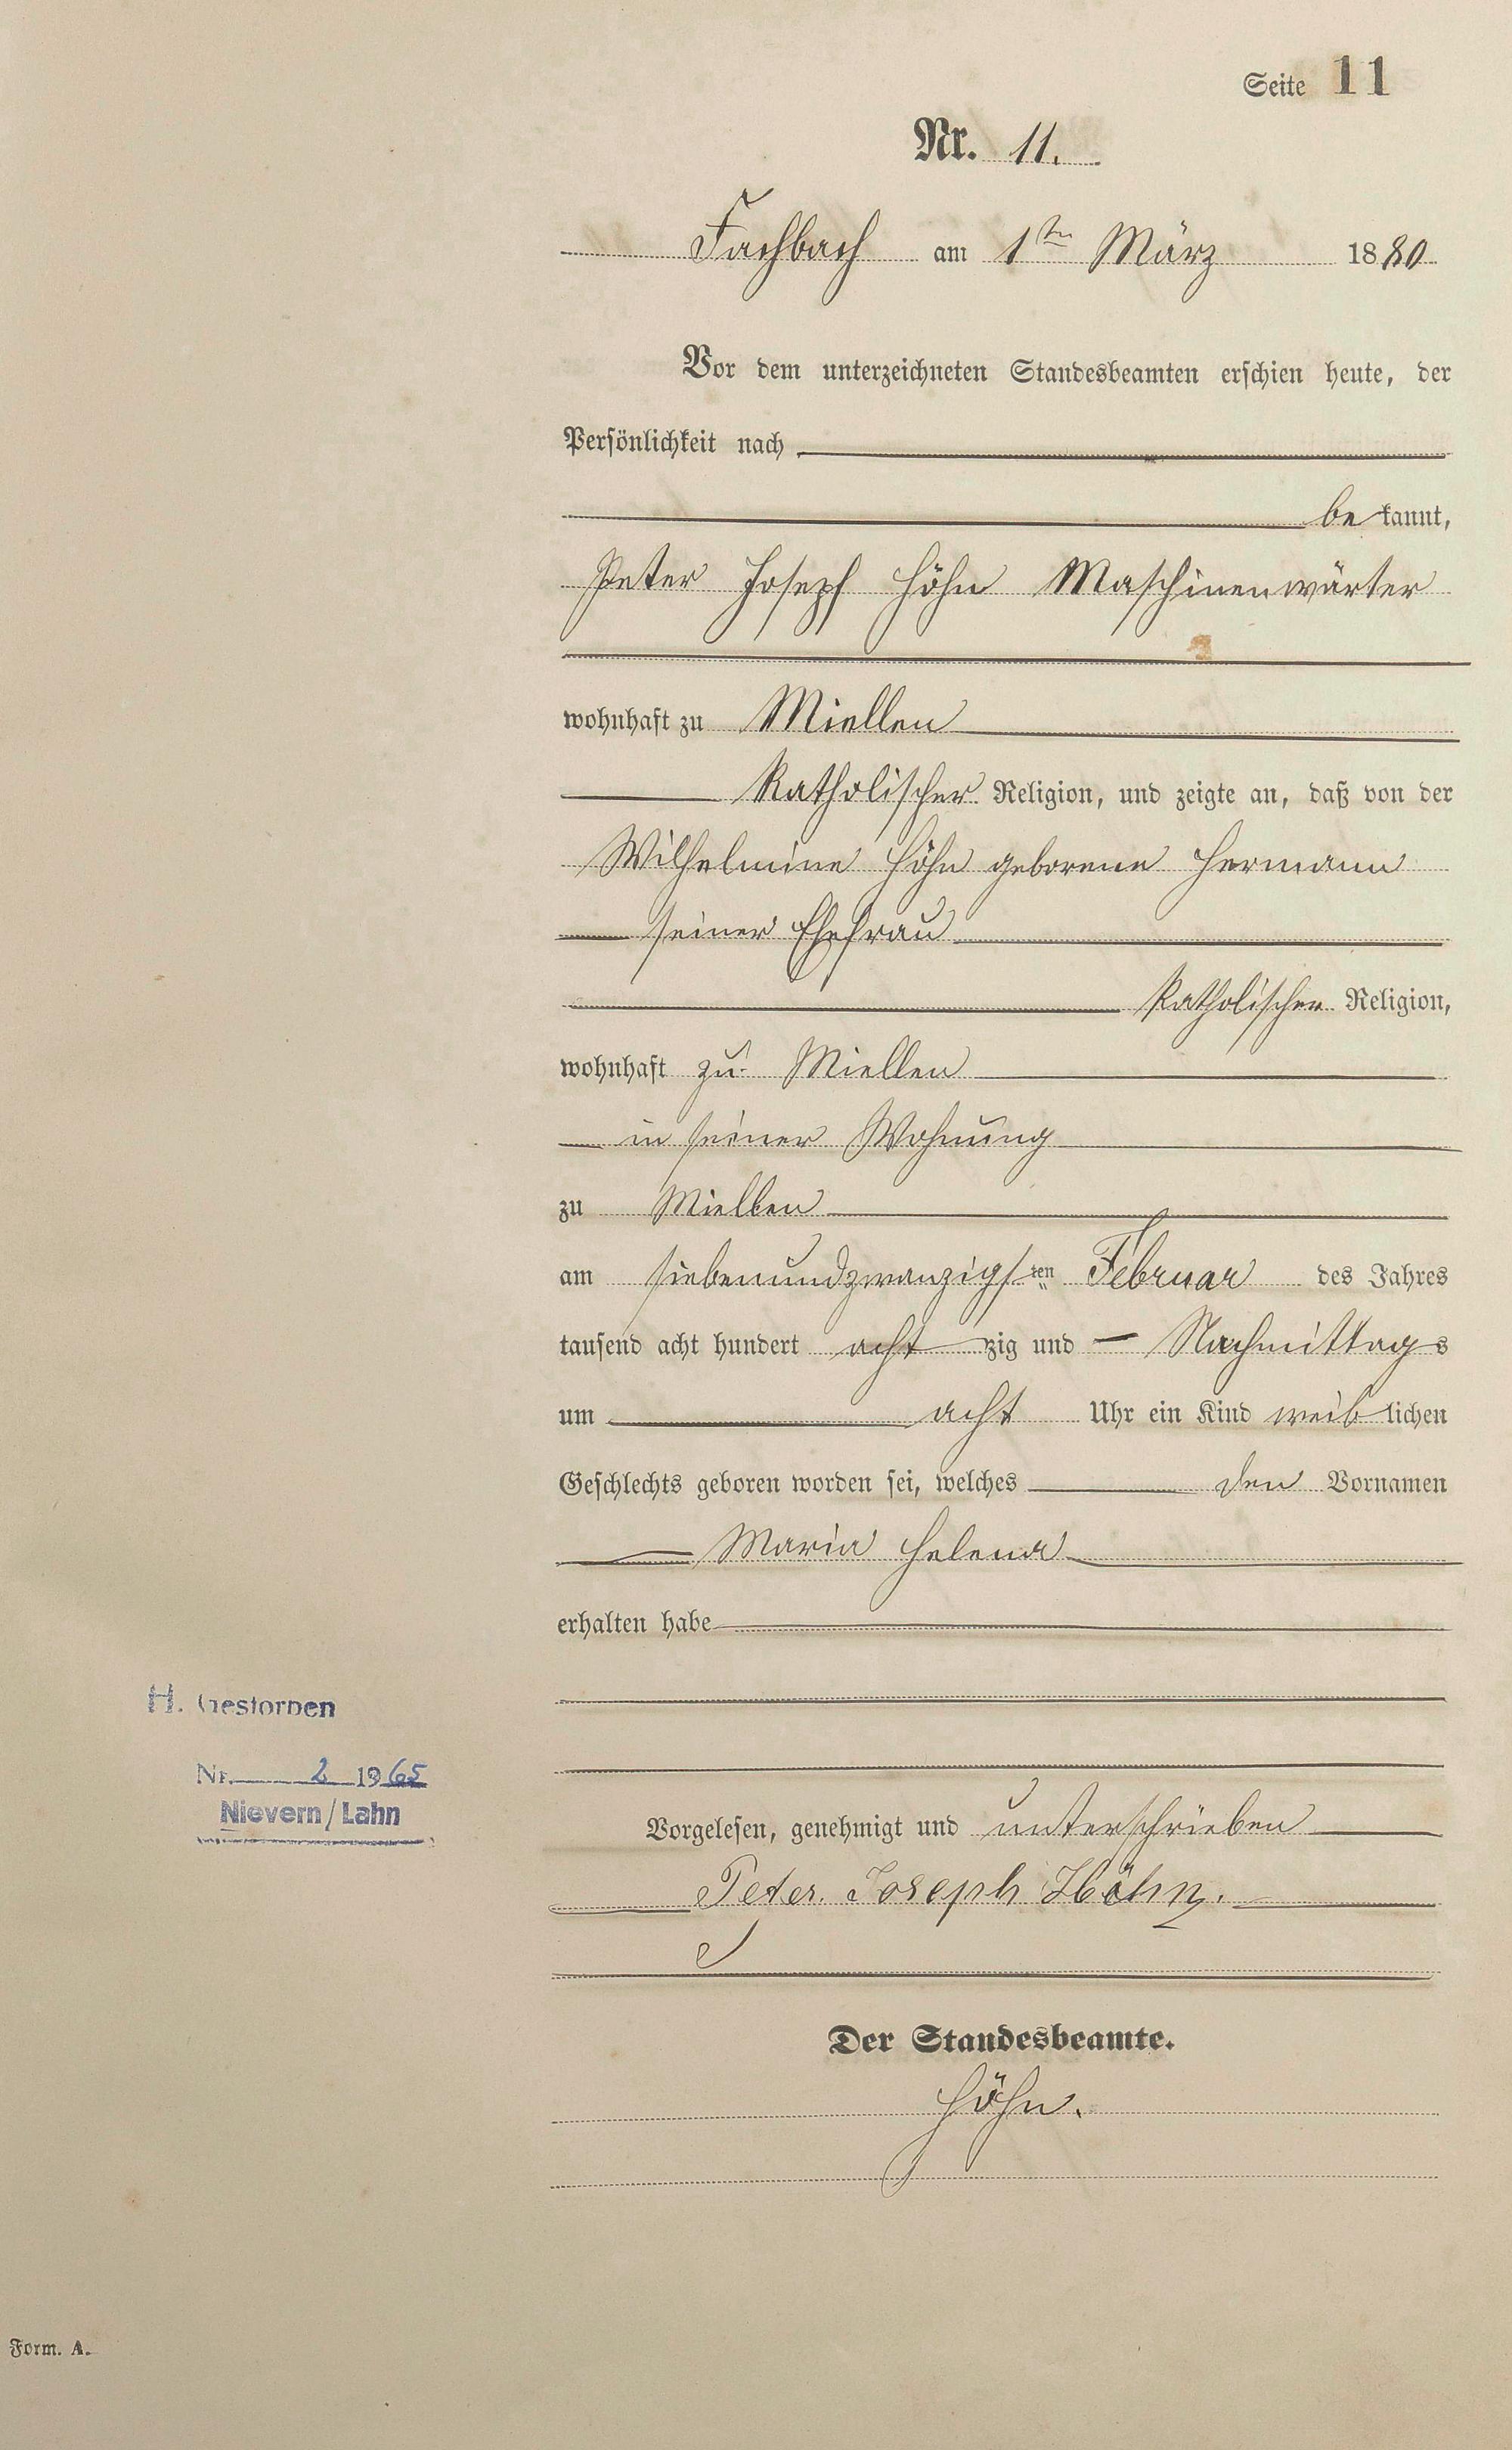 Seite 11
Nr. 11.
Fachbach am 1ten März 1880
Vor dem unterzeichneten Standesbeamten erschien heute, der
Persönlichkeit nach
bekannt,
Peter Joseph Höhn Maschinenwärter
wohnhaft zu Miellen
Katholischer Religion, und zeigte an, daß von der
Wilhelmine Höhn geborene Hermann
seiner Ehefrau
Katholischer Religion,
wohnhaft zu Miellen
in seiner Wohnung
zu Miellen
am siebenundzwanzigsten Februar des Jahres
tausend acht hundert achtzig und — Nachmittags
um acht Uhr ein Kind weiblichen
Geschlechts geboren worden sei, welches den Vornamen
Maria Helena
erhalten habe
H. Gestorben
Nr. 2 1965
Nievern/Lahn
Vorgelesen, genehmigt und unterschrieben
Peter Joseph Höhn.
Der Standesbeamte.
Höhn.
Form. A.